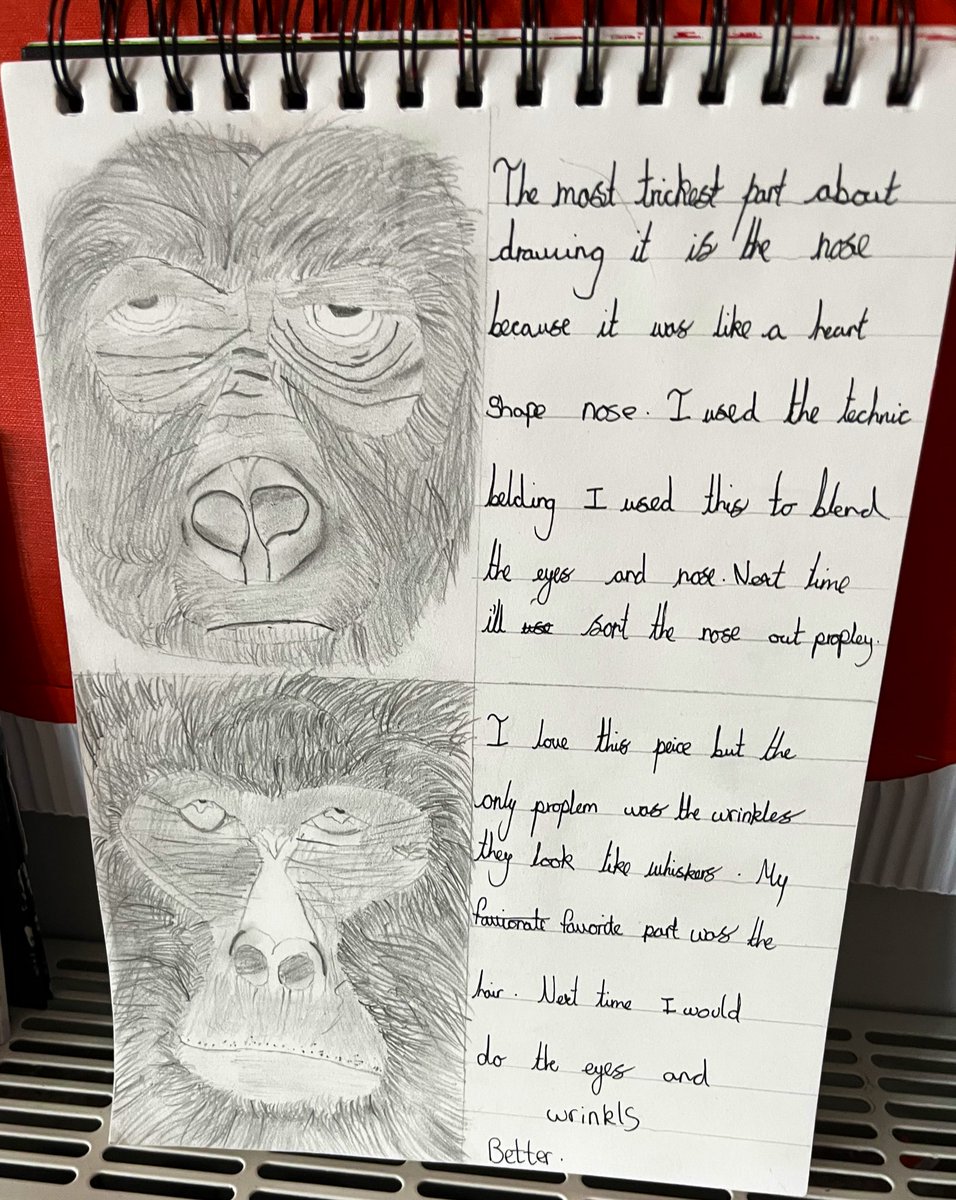 The most trickest part about
drawing it is the nose
because it was like a heart
shape nose. I used the technic
belding I used this to blend
the eyes and nose. Next time
i'll use sort the nose out propley.
I love this peice but the
only proplem was the wrinkles
they look like whiskers. My
favourite part was the
hair. Next time I would
do the eyes and
wrinkls
Better.